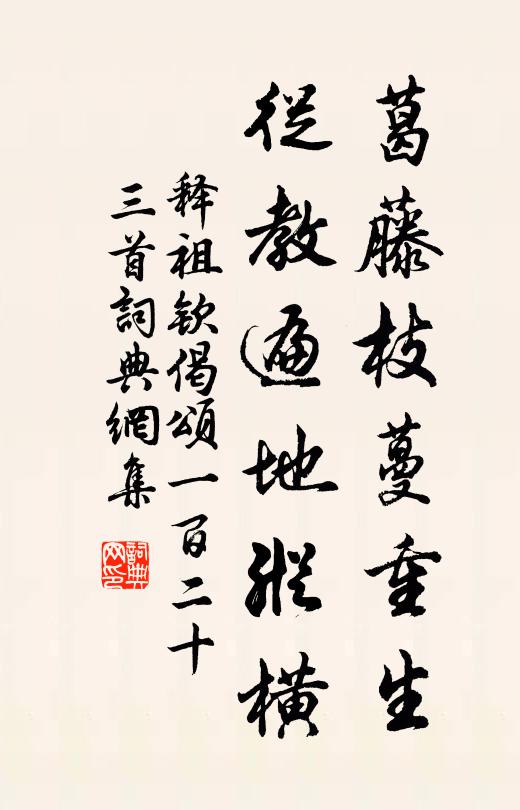 葛藤枝蔓重生
從教遍地縱橫
释祖欽偈頌一百二十
三首詞典網集
詞典網印